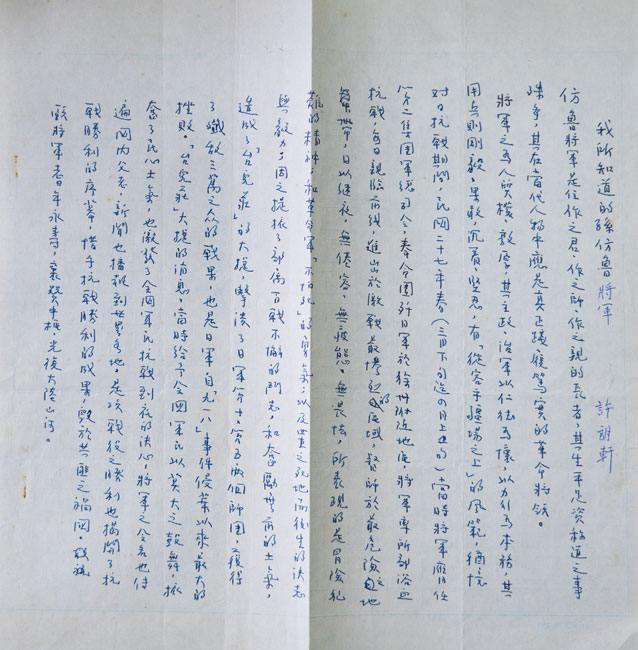 我所知道的孫仿魯將軍　許朗軒
仿魯將軍是位作之君、作之師、作之親的長者，其生平足資稱道之事
殊多，其在當代人物中應是真正踐履篤實的革命將領。
將軍之為人質樸敦厚，其主政治軍以仁德為懷，以力行為本務，其
用兵則剛毅、果敢、沉着、堅忍，有「從容乎疆場之上」的風範，猶憶
對日抗戰期間，民國二十七年春（三月下旬迄四月上旬）當時將軍膺任
第二集團軍總司令，奉令圍殲日軍於徐州附近地區，將軍率所部浴血
抗戰，每日親臨前線，進出於激戰最慘烈的區域，督師於最危險之地
日以繼夜，無倦容，無疲態，無畏怯，所表現的是冒險犯
難的精神，和革命軍「不怕死」的勇氣，以及置之死地而後生的決志
與毅力，因之提振了部屬百戰不懈的鬥志，和奮勵無前的士氣，
造成了「台兒莊」的大捷，擊潰了日軍第十、第五兩個師團，獲得
了殲敵三萬之眾的戰果，也是日軍自「九一八」事件侵華以來最大的
挫敗。「台兒莊」大捷的消息，當時給予全國軍民以莫大之鼓舞，振
奮了民心士氣，也激發了全國軍民抗戰到底的決心，將軍之令名也傳
遍國內父老，新聞也播報到世界各地，是項戰役之勝利也揭開了抗
戰勝利的序幕，惜乎抗戰勝利的成果，毀於共匪之禍國，敬祝
將軍春壽永壽，裏贊中樞光復大陸山河。